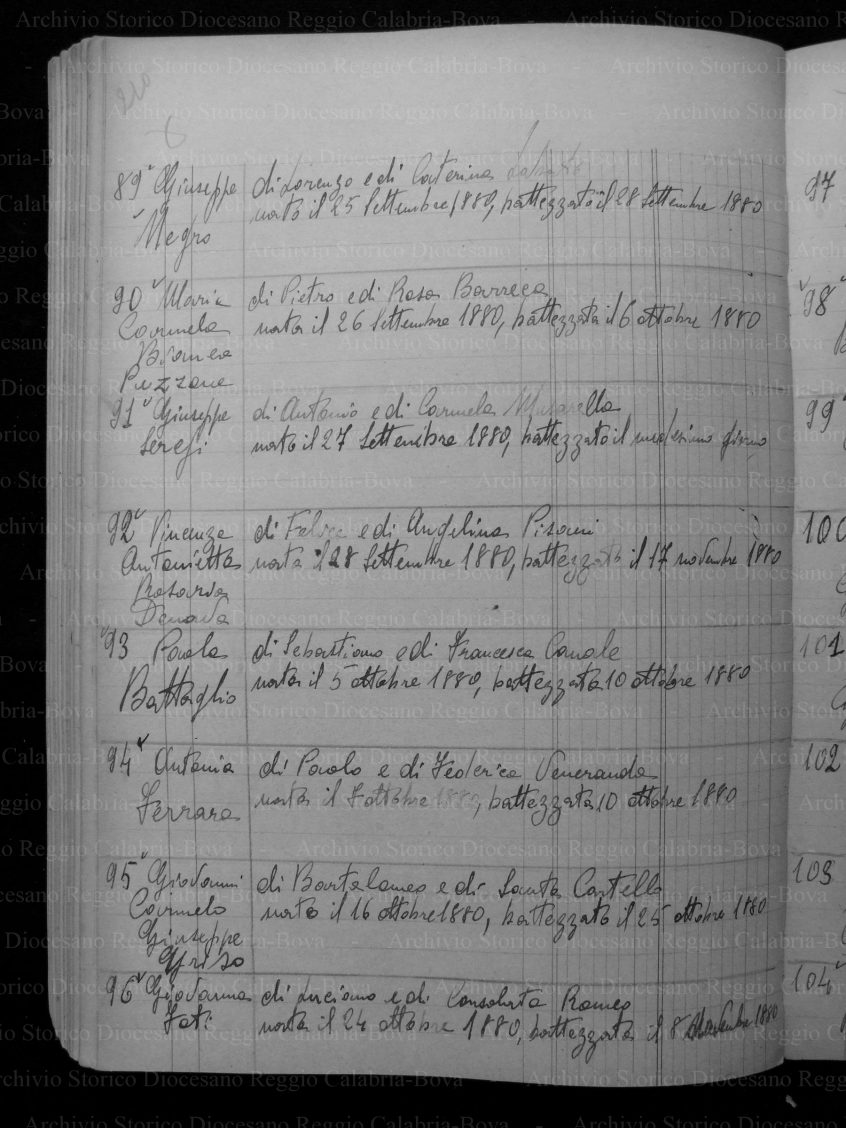 210
89 Giuseppe di Lorenzo e di Caterina
Negro nato il 25 Settembre 1880, battezzato il 28 Settembre 1880
90 Maria di Pietro e di Rosa Barreca
Carmela nata il 26 Settembre 1880, battezzata il 6 ottobre 1880
Puzzone
91 Giuseppe di Antonio e di Carmela Musarella
Seregi nato il 27 Settembre 1880, battezzato il medesimo giorno
92 Vincenza di Felice e di Angelina Pisani
Antonietta nata il 28 Settembre 1880, battezzata il 17 novembre 1880
Rosaria
Denava
93 Paola di Sebastiano e di Francesca Canale
Battaglio nata il 5 ottobre 1880, battezzata 10 ottobre 1880
94 Antonia di Paolo e di Federica Veneranda
Ferrara nata il 7 ottobre 1880, battezzata 10 ottobre 1880
95 Giovanni di Bartolomeo e di Santa Cartella
Carmelo nato il 16 ottobre 1880, battezzato il 25 ottobre 1880
Giuseppe
Griso
96 Giovanna di Luciano e di Consolata Romeo
Fati nata il 24 ottobre 1880, battezzata il 8 Novembre 1880
97
98
99
100
101
102
103
104
Archivio Storico Diocesano Reggio Calabria-Bova